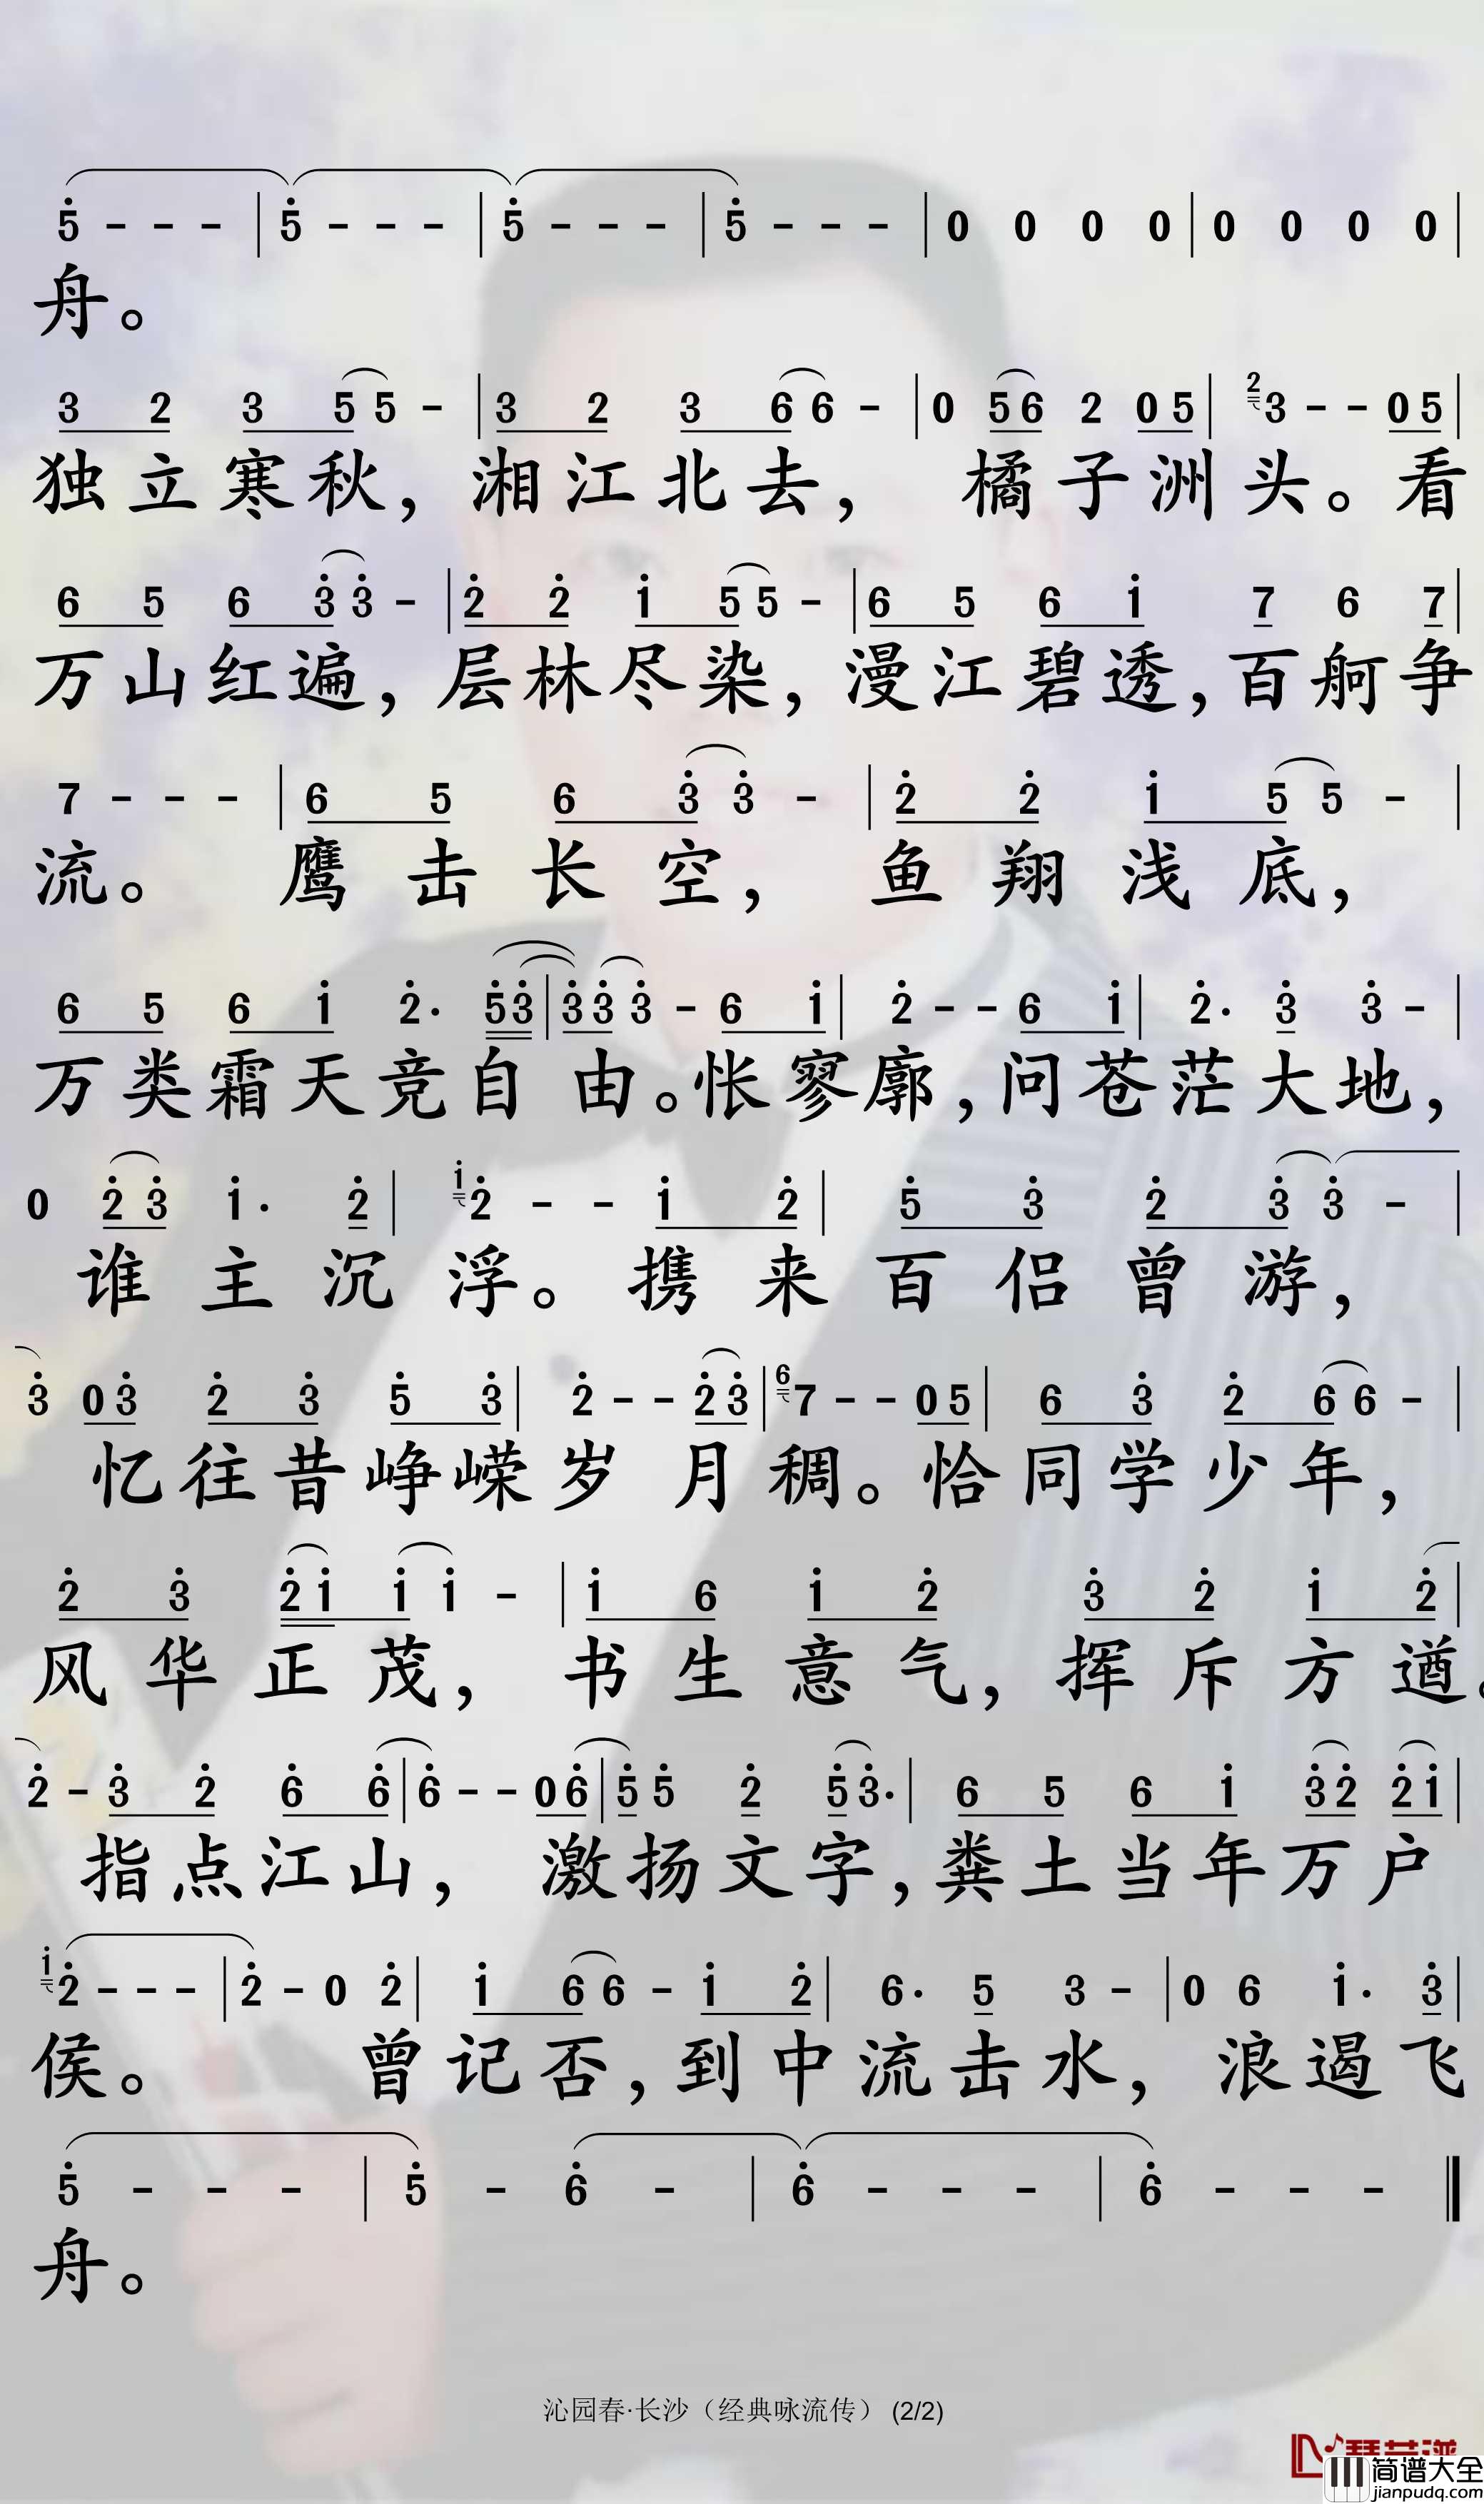 5 - - - | 5 - - - | 5 - - - | 5 - - - | 0 0 0 0 | 0 0 0 0 |
舟。
3 2 3 5 5 - | 3 2 3 6 6 - | 0 5 6 2 0 5 | 2 3 - - 0 5 |
独立寒秋，湘江北去，橘子洲头。看
6 5 6 3 3 - | 2 2 1 5 5 - | 6 5 6 1 7 6 7 |
万山红遍，层林尽染，漫江碧透，百舸争
7 - - - | 6 5 6 3 3 - | 2 2 1 5 5 - |
流。鹰击长空，鱼翔浅底，
6 5 6 1 2. 5 3 | 3 3 3 - 6 1 | 2 - - 6 1 | 2. 3 3 - |
万类霜天竞自由。怅寥廓，问苍茫大地，
0 2 3 1. 2 | 1 2 - - 1 2 | 5 3 2 3 3 - |
谁主沉浮。携来百侣曾游，
3 0 3 2 3 5 3 | 2 - - 2 3 | 6 7 - - 0 5 | 6 3 2 6 6 - |
忆往昔峥嵘岁月稠。恰同学少年，
2 3 2 1 1 1 - | 1 6 1 2 3 2 1 2 |
风华正茂，书生意气，挥斥方遒。
2 - 3 2 6 6 | 6 - - 0 6 | 5 5 2 5 3. | 6 5 6 1 3 2 2 1 |
指点江山，激扬文字，粪土当年万户
1 2 - - - | 2 - 0 2 | 1 6 6 - 1 2 | 6. 5 3 - | 0 6 1. 3 |
侯。曾记否，到中流击水，浪遏飞
5 - - - | 5 - 6 - | 6 - - - | 6 - - - ‖
舟。
沁园春·长沙（经典咏流传） (2/2)
简谱大全
jianpudq.com